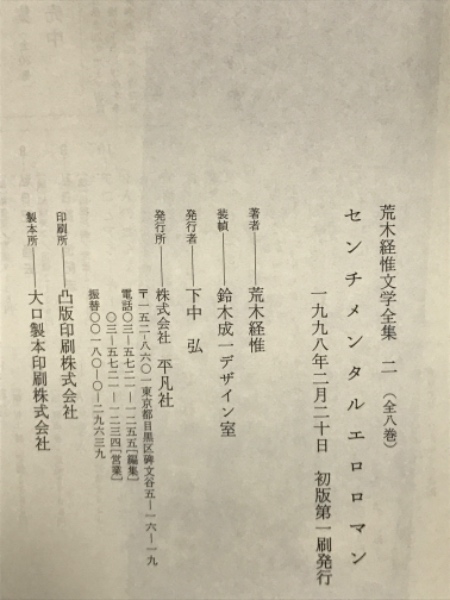 荒木経惟文学全集 二 (全八巻)
センチメンタルエロロマン
一九九八年二月二十日 初版第一刷発行
著者──荒木経惟
装幀──鈴木成一デザイン室
発行者──下中 弘
発行所──株式会社 平凡社
〒一五二-八六〇一東京都目黒区碑文谷五-一六-一九
電話〇三-五七二一-一二五五[編集]
〇三-五七二一-一二三四[営業]
振替〇〇一八〇-〇-二九六三九
印刷所──凸版印刷株式会社
製本所──大口製本印刷株式会社